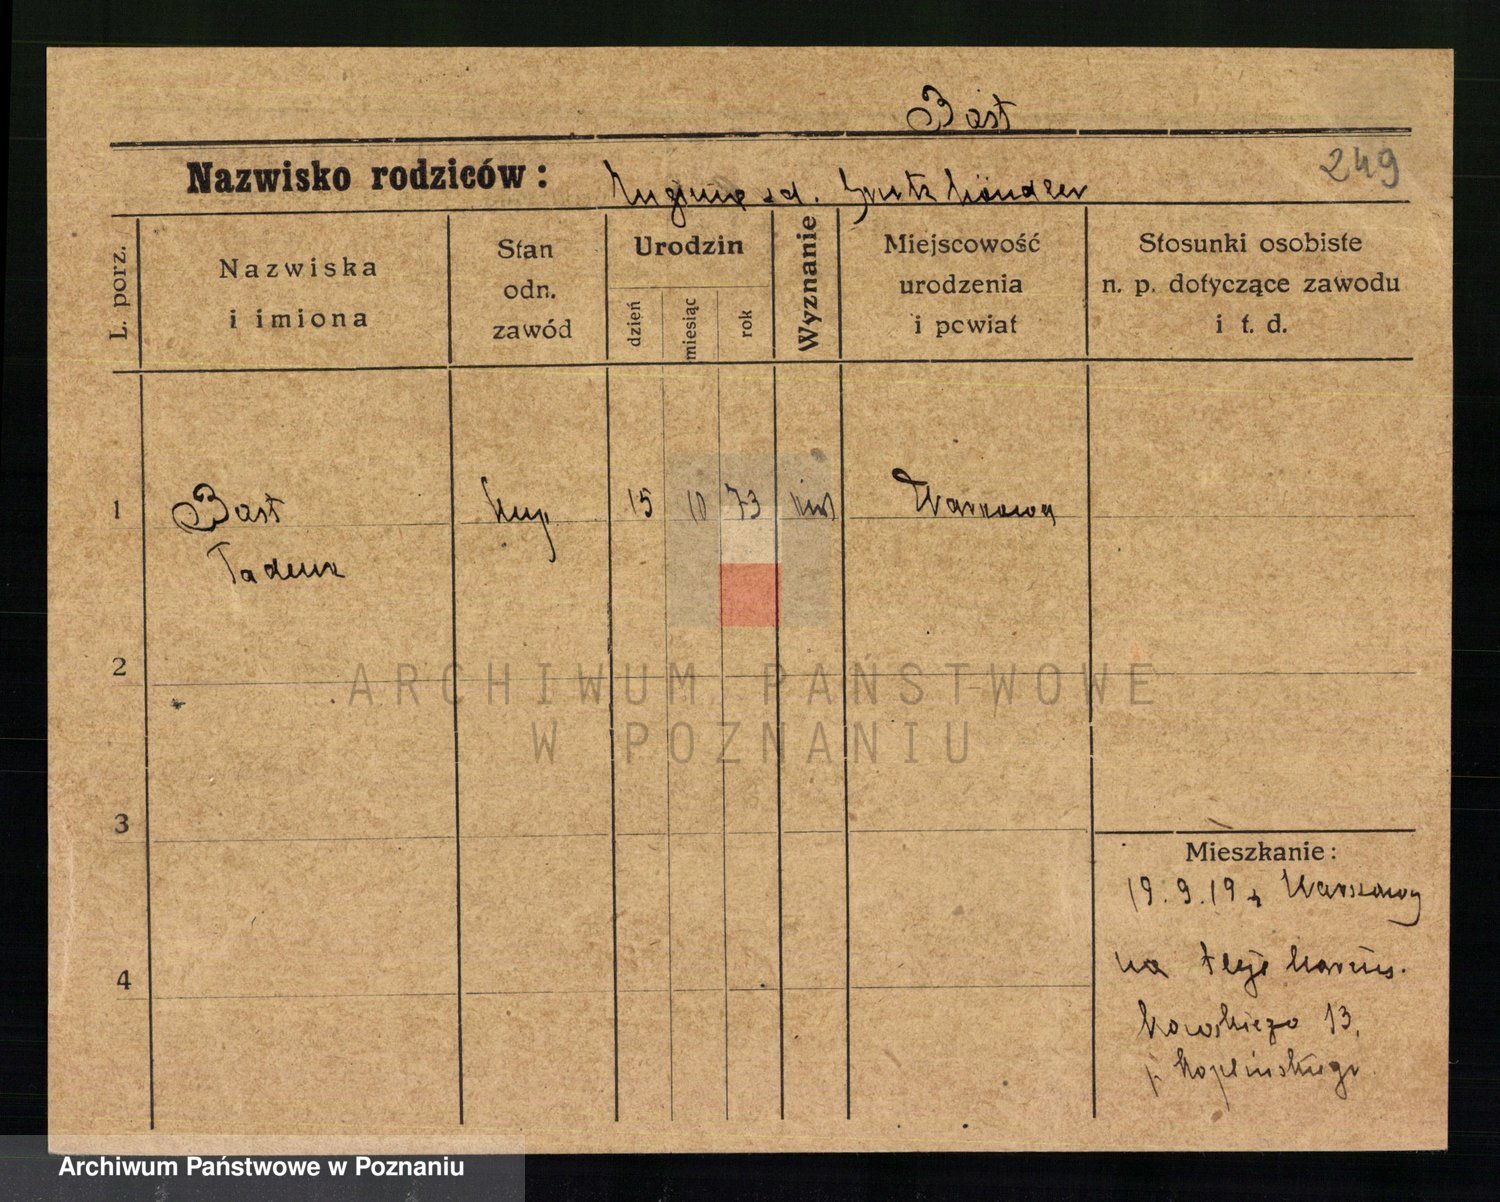 Bast
249
Nazwisko rodziców:
L. porz.
Nazwiska i imiona
Stan odn. zawód
Urodzin
dzień
miesiąc
rok
Wyznanie
Miejscowość urodzenia i powiat
Stosunki osobiste n. p. dotyczące zawodu i t. d.
1 Bast Kup 15 10 73 Warszawa
Tadeusz
2
3
4
ARCHIWUM PAŃSTWOWE
W POZNANIU
Mieszkanie:
19.9.19 z Warszawy
na
kowskiego 13,
Koplińskiego
Archiwum Państwowe w Poznaniu